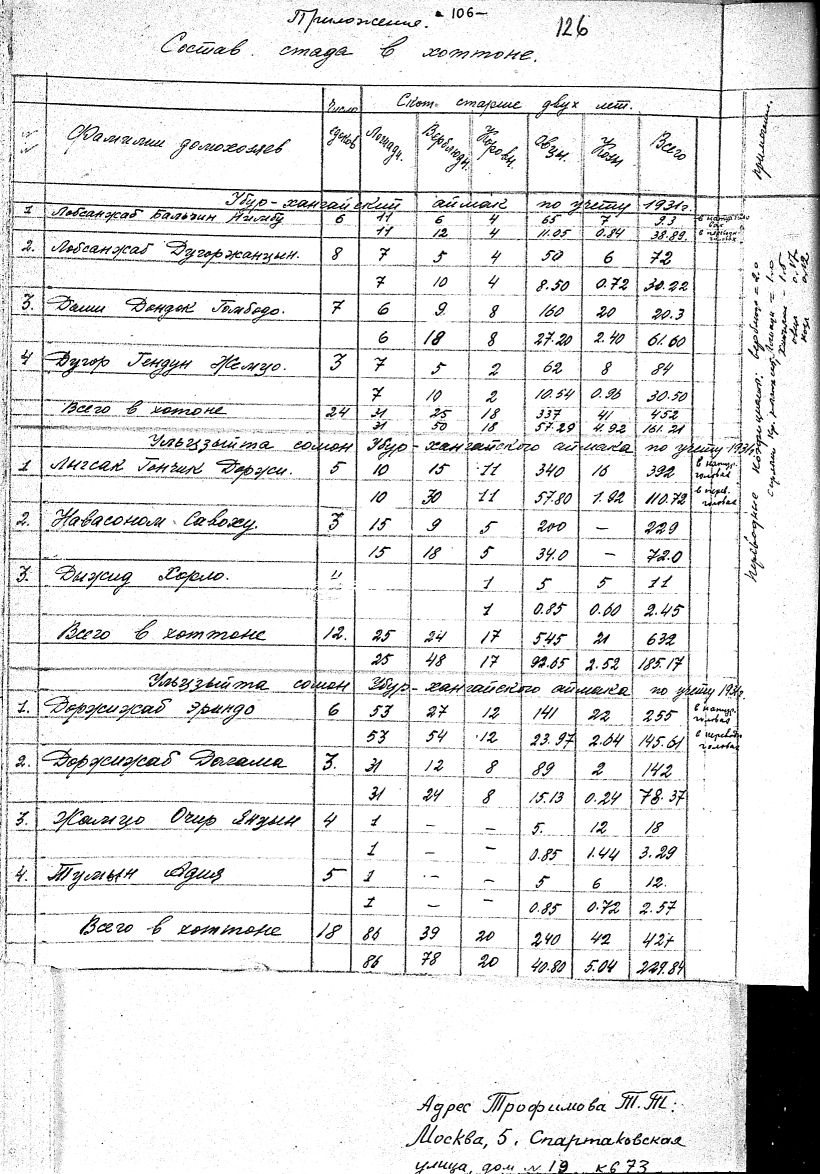 Приложения.
— 106 —
126
Состав стада в хоттоне.
Фамилии домохозяев Число едоков Скот старше двух лет. Примечания.
Лошади. Верблюды. Коровы. Овцы. Козы Всего
Убур-хангайский аймак по учету 1931г.
1 Лобсанжаб Бальчин 6 11 6 4 65 7 93
11 12 4 11.05 0.84 38.89
2. Лобсанжаб Дугоржанцын. 8 7 5 4 50 6 72
7 10 4 8.50 0.72 30.22
3. Даши Дондок Гомбодо. 7 6 9 8 160 20 20.3
6 18 8 27.20 2.40 61.60
4 Дугор Гендун Жемцо. 3 7 5 2 62 8 84
7 10 2 10.54 0.96 30.50
Всего в хотоне 24 31 25 18 337 41 452
31 50 18 57.29 4.92 161.21
Ульцзыйта сомон Убур-хангайского аймака по учету 1931г.
1 Лыгсак Гончик Доржи. 5 10 15 11 340 16 392 в натур. головах
10 30 11 57.80 1.92 110.72 в перев. головах
2. Навасоном Савоху. 3 15 9 5 200 — 229
15 18 5 34.0 — 72.0
3. Дыжид Хорло. 4 1 5 5 11
1 0.85 0.60 2.45
Всего в хоттоне 12. 25 24 17 545 21 632
25 48 17 92.65 2.52 185.17
Ульцзыйта сомон Убур-хангайского аймака по учету 1931г.
1. Доржижаб Эриндо 6 53 27 12 141 22 255 в натур. головах
53 54 12 23.97 2.64 145.61 в перевод. головах
2. Доржижаб Долама 3. 31 12 8 89 2 142
31 24 8 15.13 0.24 78.37
3. Жамцо Очир Янцын 4 1 — — 5. 12 18
1 — — 0.85 1.44 3.29
4. Тумын Адия 5 1 — — 5 6 12.
1 — — 0.85 0.72 2.57
Всего в хоттоне 18 86 39 20 240 42 427
86 78 20 40.80 5.04 229.84
Переводные коэфициент: верблюд = 2.0
лошадь = 1.0
овца 0.17
коза 0.12
Адрес Трофимова Т.Т:
Москва, 5. Спартаковская
улица, дом № 19 кв 73